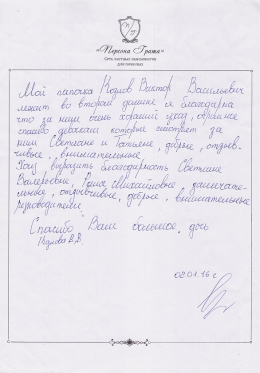 «Персона Грата»
Сеть частных пансионатов
для пожилых
Мой папочка Козлов Виктор Васильевич
лежит во втором домике я благодарна
что за ним очень хороший уход, огромное
спасибо девочкам которые смотрят за
ним Светлане и Татьяне, добрые, отзыв-
чивые, внимательные.
Хочу выразить благодарность Светлане
Валерьевне, Михайловне, замечате-
льные, отзывчивые, добрые, внимательные
руководители.
Спасибо Вам большое, дочь
Козлова В.В.
02.01.16 г.